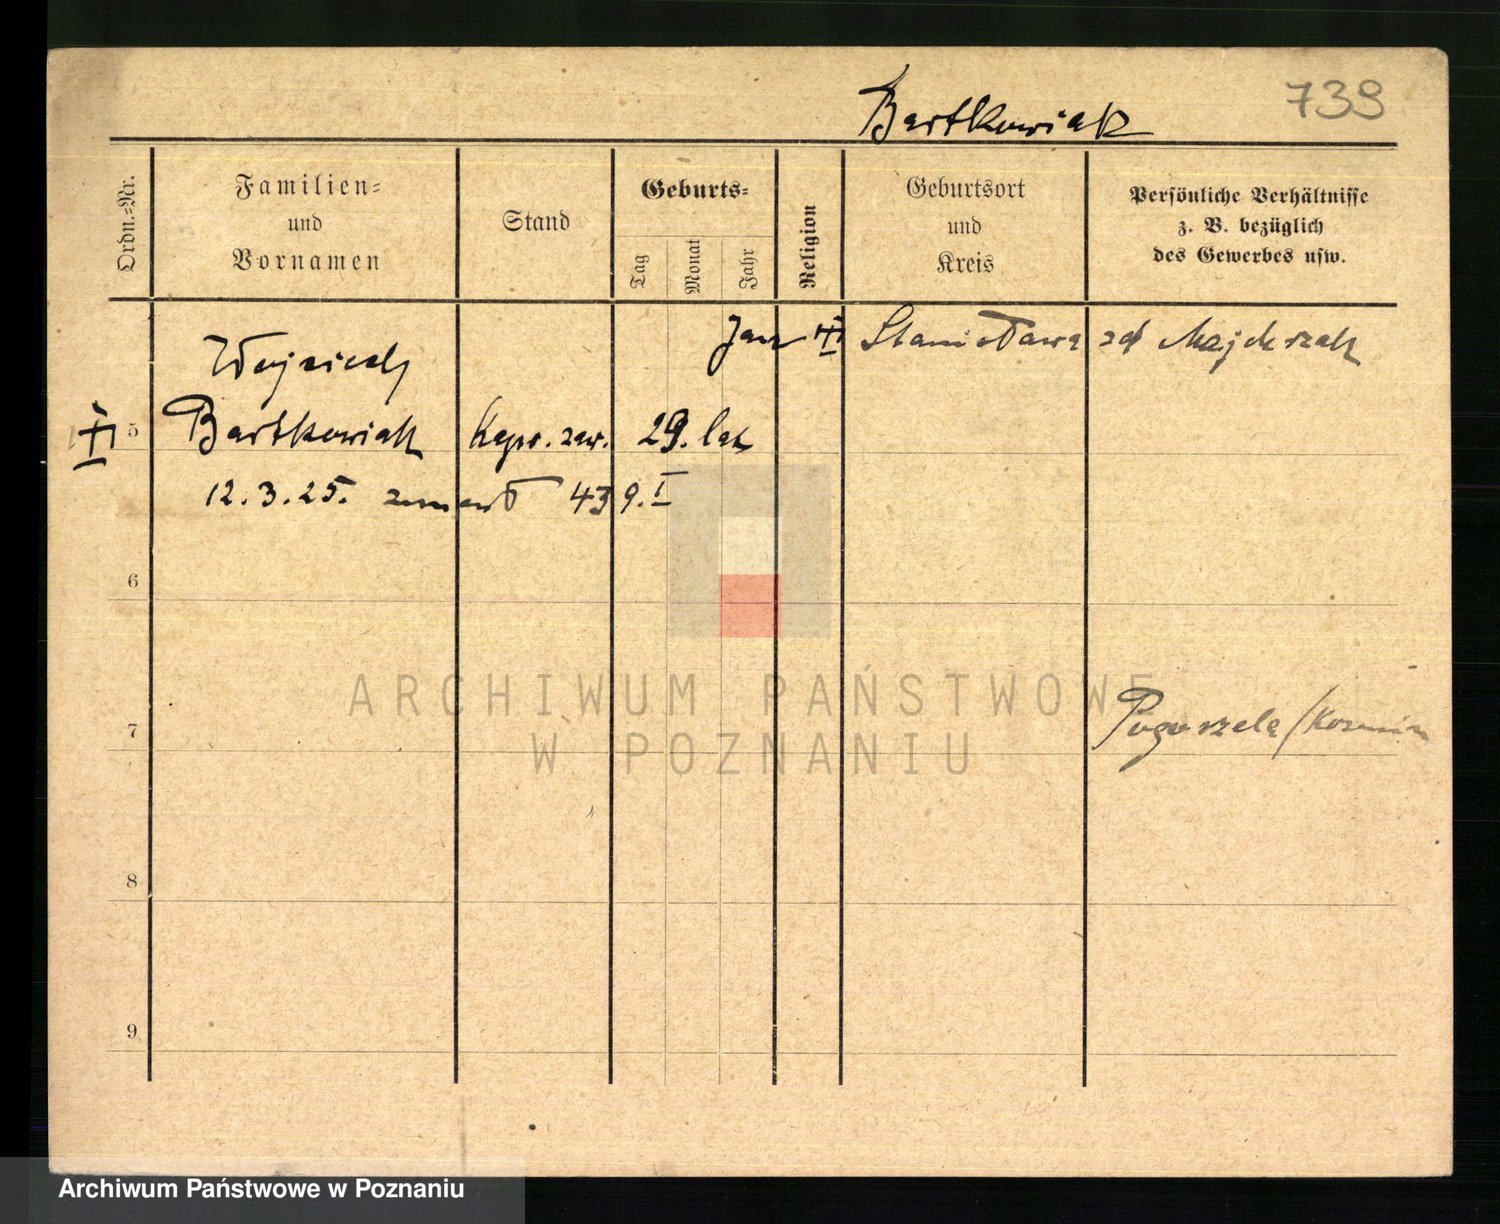 Bartkowiak 739
Ordn.=Nr.
Familien=
und
Vornamen
Stand
Geburts=
Tag
Monat
Jahr
Religion
Geburtsort
und
Kreis
Persönliche Verhältnisse
z. B. bezüglich
des Gewerbes usw.
Jan Stanisława zd Majchrzak
Wojciech
5 Bartkowiak Kapr. zaw. 29. lat
12.3.25. zmarł 439.I
6
ARCHIWUM PAŃSTWOWE
W POZNANIU
7 Pogorzela/Koźmin
8
9
Archiwum Państwowe w Poznaniu